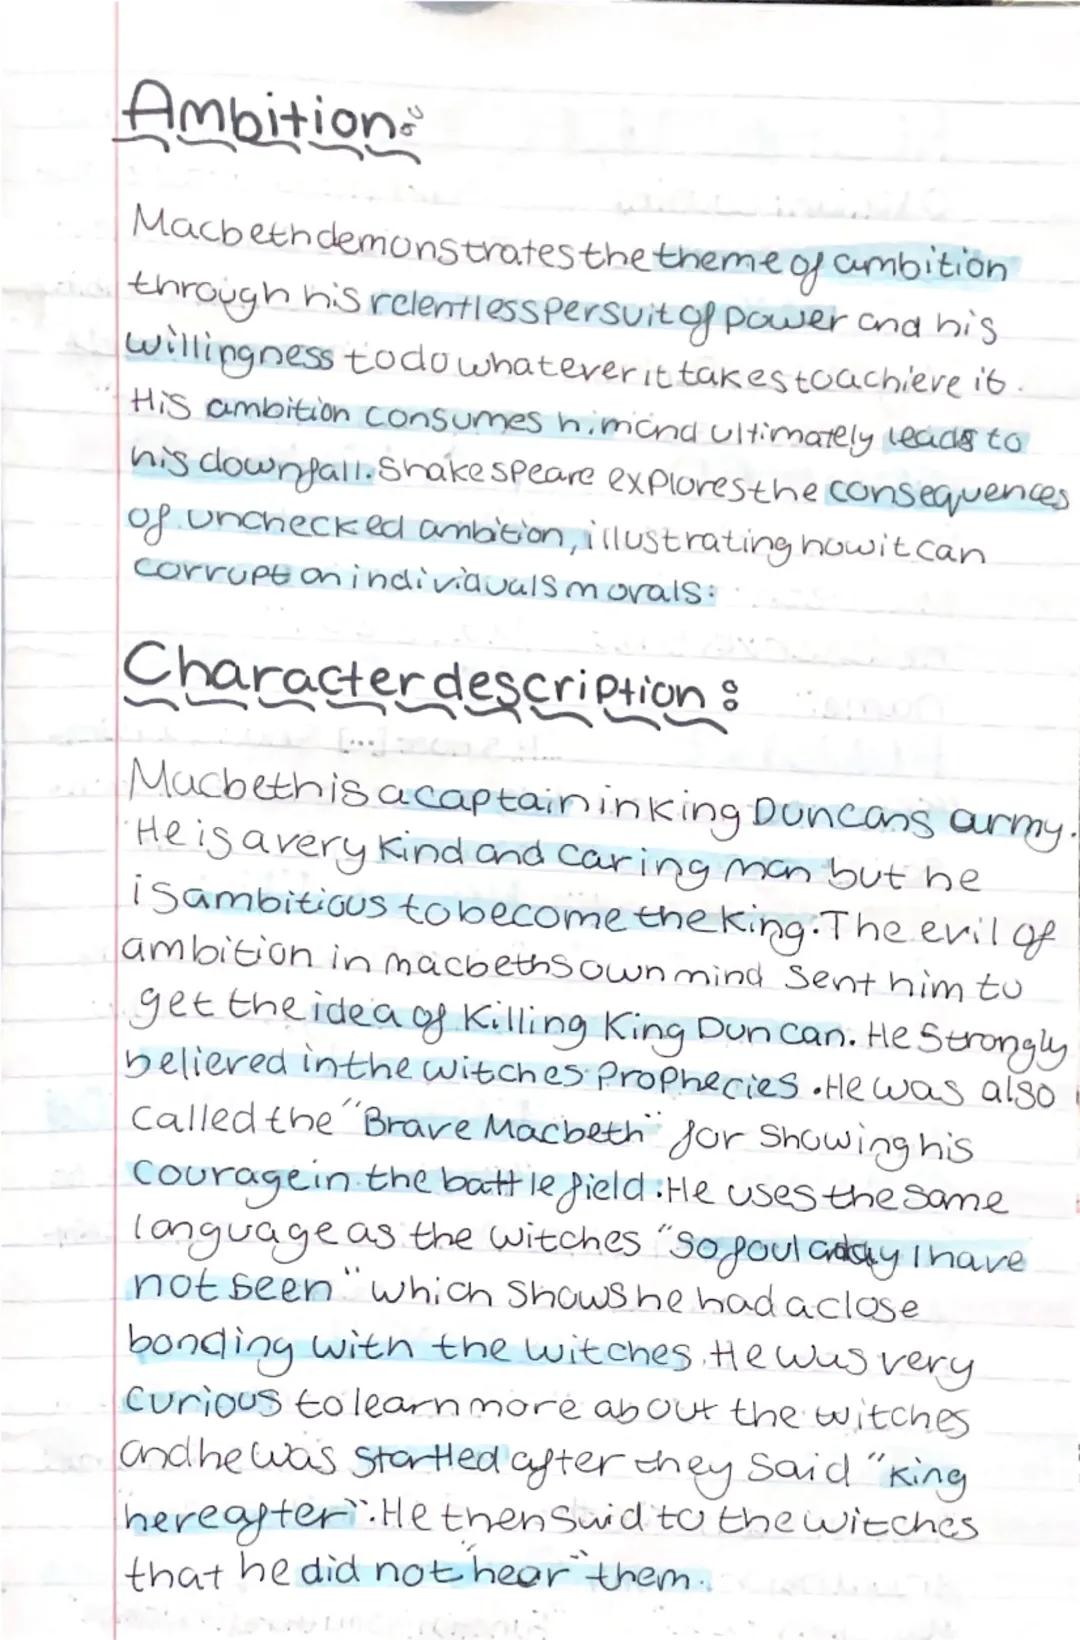 Ambition:
Macbeth demonstrates the theme of ambition
through his relentless persuit of power and his
willingness to do whatever it takes to achieve it.
His ambition consumes him and ultimately leads to
his downfall. Shakespeare explores the consequences
of unchecked ambition, illustrating how it can
corrupt an individuals morals:
Character description:
Macbeth is a captain in king Duncans army.
He is a very kind and caring man but he
is ambitious to become the king. The evil of
ambition in macbeths own mind sent him to
get the idea of killing King Duncan. He strongly
believed in the witches prophecies. He was also
called the "Brave Macbeth" for showing his
courage in the battle field. He uses the same
language as the witches "So foul a day I have
not seen" which shows he had a close
bonding with the witches. He was very
curious to learn more about the witches
and he was startled after they said "King
hereafter". He then said to the witches
that he did not "hear" them.